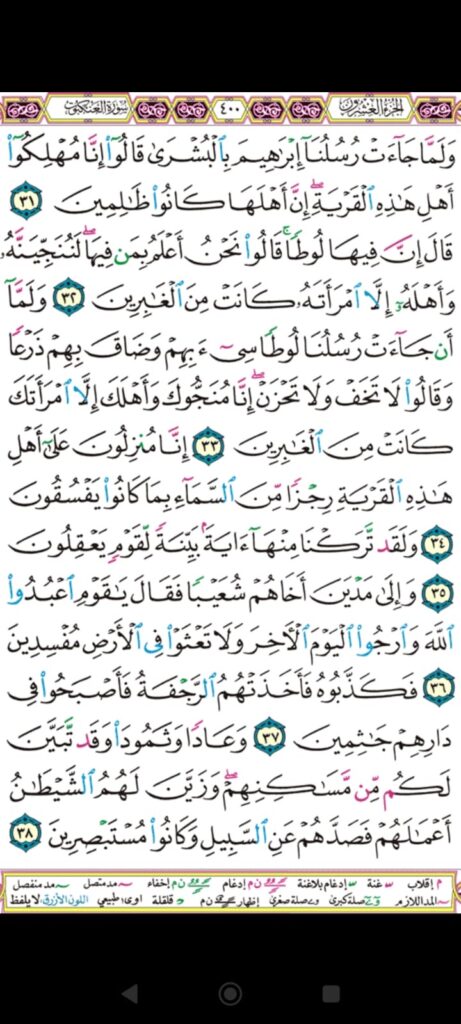 الجزء العشرون ٤٠٠ سورة العنكبوت
وَلَمَّا جَآءَتْ رُسُلُنَآ إِبْرَٰهِيمَ بِٱلْبُشْرَىٰ قَالُوٓا۟ إِنَّا مُهْلِكُوٓا۟
أَهْلِ هَٰذِهِ ٱلْقَرْيَةِ ۖ إِنَّ أَهْلَهَا كَانُوا۟ ظَٰلِمِينَ ٣١
قَالَ إِنَّ فِيهَا لُوطًا ۚ قَالُوا۟ نَحْنُ أَعْلَمُ بِمَن فِيهَا ۖ لَنُنَجِّيَنَّهُۥ
وَأَهْلَهُۥٓ إِلَّا ٱمْرَأَتَهُۥ كَانَتْ مِنَ ٱلْغَٰبِرِينَ ٣٢ وَلَمَّآ
أَن جَآءَتْ رُسُلُنَا لُوطًا سِىٓءَ بِهِمْ وَضَاقَ بِهِمْ ذَرْعًا
وَقَالُوا۟ لَا تَخَفْ وَلَا تَحْزَنْ ۖ إِنَّا مُنَجُّوكَ وَأَهْلَكَ إِلَّا ٱمْرَأَتَكَ
كَانَتْ مِنَ ٱلْغَٰبِرِينَ ٣٣ إِنَّا مُنزِلُونَ عَلَىٰٓ أَهْلِ
هَٰذِهِ ٱلْقَرْيَةِ رِجْزًا مِّنَ ٱلسَّمَآءِ بِمَا كَانُوا۟ يَفْسُقُونَ
٣٤ وَلَقَد تَّرَكْنَا مِنْهَآ ءَايَةًۢ بَيِّنَةً لِّقَوْمٍ يَعْقِلُونَ
٣٥ وَإِلَىٰ مَدْيَنَ أَخَاهُمْ شُعَيْبًا فَقَالَ يَٰقَوْمِ ٱعْبُدُوا۟
ٱللَّهَ وَٱرْجُوا۟ ٱلْيَوْمَ ٱلْءَاخِرَ وَلَا تَعْثَوْا۟ فِى ٱلْأَرْضِ مُفْسِدِينَ
٣٦ فَكَذَّبُوهُ فَأَخَذَتْهُمُ ٱلرَّجْفَةُ فَأَصْبَحُوا۟ فِى
دَارِهِمْ جَٰثِمِينَ ٣٧ وَعَادًا وَثَمُودَا۟ وَقَد تَّبَيَّنَ
لَكُم مِّن مَّسَٰكِنِهِمْ ۖ وَزَيَّنَ لَهُمُ ٱلشَّيْطَٰنُ
أَعْمَٰلَهُمْ فَصَدَّهُمْ عَنِ ٱلسَّبِيلِ وَكَانُوا۟ مُسْتَبْصِرِينَ ٣٨
م إقلاب غنة إدغام بلاغنة ن م إدغام ن م إخفاء مد متصل مد منفصل
المد اللازم صلة كبرى صلة صغرى إظهار ن م قلقلة اوى: طبيعي اللون الأزرق: لا يلفظ